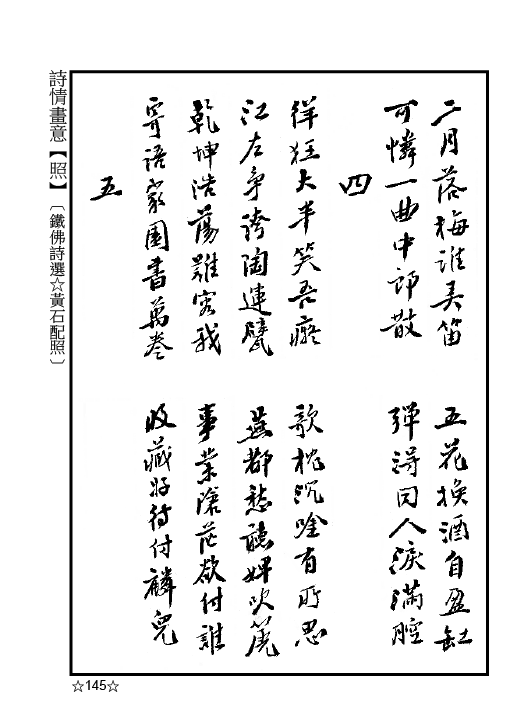 二月落梅誰弄笛　五花換酒自盈缸
可憐一曲中郎散　彈得同人淚滿腔
四
佯狂大半笑吾癡　欹枕沉唫有所思
江左爭誇陶運甓　燕都愁聽婢吹篪
乾坤浩蕩難容我　事業蒼茫欲付誰
寄語家園書萬卷　收藏好待付麟兒
五
詩情畫意【照】〔鐵佛詩選☆黃石配照〕
☆145☆